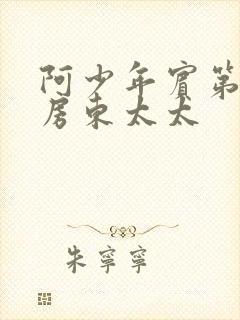 阿少年賓第
房东太太
朱寧寧